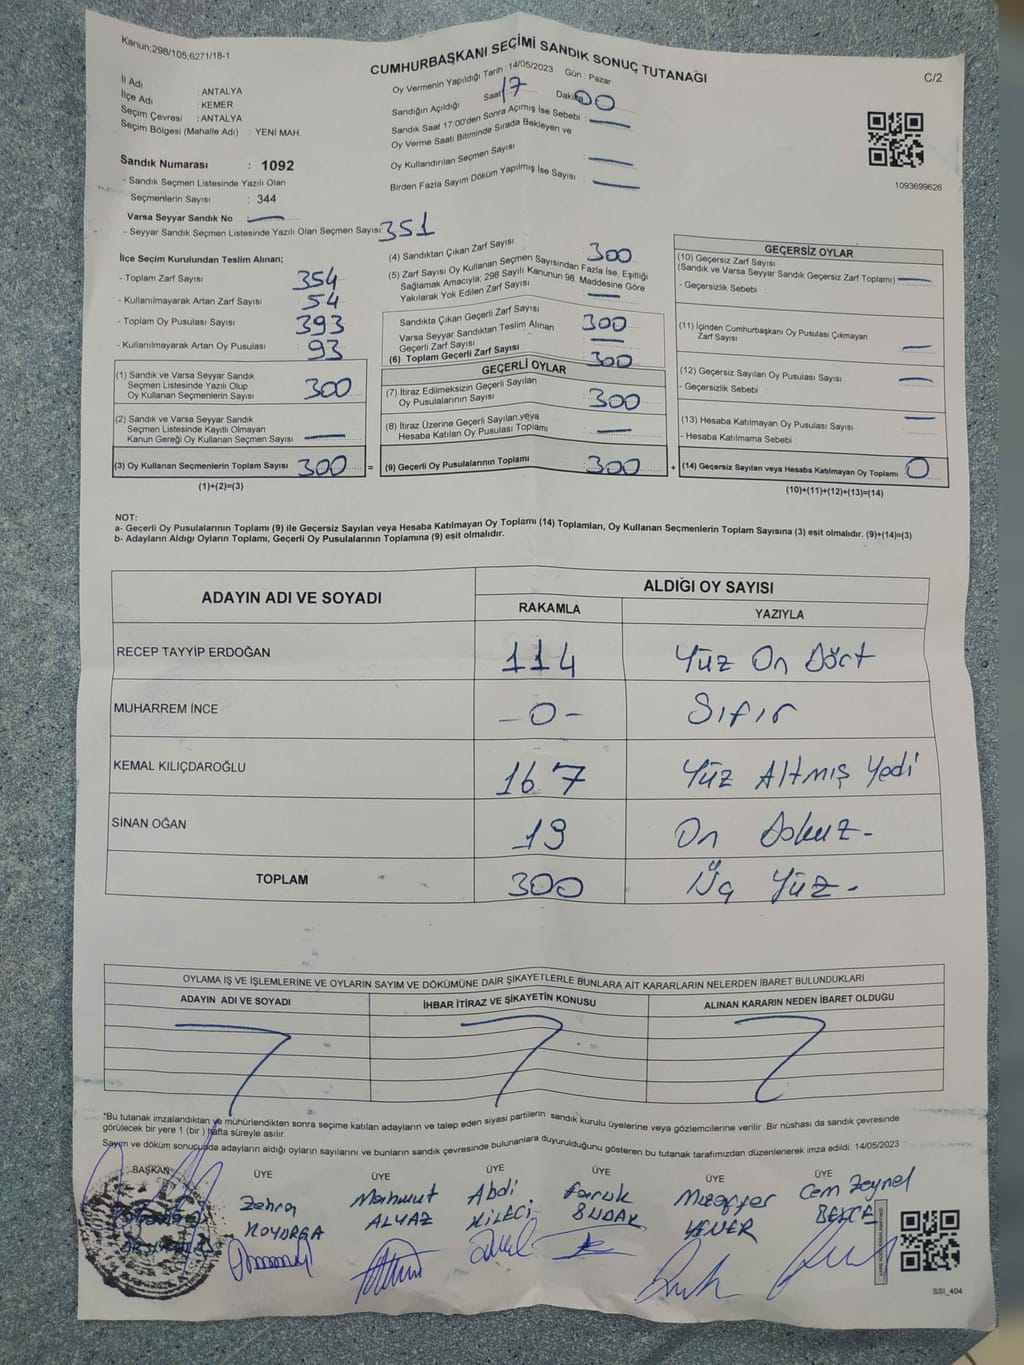 Kanun;298/105,6271/18-1
CUMHURBAŞKANI SEÇİMİ SANDIK SONUÇ TUTANAĞI
C/2
İl Adı : ANTALYA
İlçe Adı : KEMER
Seçim Çevresi : ANTALYA
Seçim Bölgesi (Mahalle Adı) : YENİ MAH.
Oy Vermenin Yapıldığı Tarih : 14/05/2023 Gün : Pazar
Sandığın Açıldığı Saat 17 Dakika 00
Sandık Saat 17:00'den Sonra Açımış İse Sebebi :
Oy Verme Saati Bitiminde Sırada Bekleyen ve
Oy Kullandırılan Seçmen Sayısı :
Birden Fazla Sayım Döküm Yapılmış İse Sayısı :
1093699626
Sandık Numarası : 1092
- Sandık Seçmen Listesinde Yazılı Olan
Seçmenlerin Sayısı : 344
Varsa Seyyar Sandık No :
- Seyyar Sandık Seçmen Listesinde Yazılı Olan Seçmen Sayısı: 351
İlçe Seçim Kurulundan Teslim Alınan;
- Toplam Zarf Sayısı : 354
- Kullanılmayarak Artan Zarf Sayısı : 54
- Toplam Oy Pusulası Sayısı : 393
- Kullanılmayarak Artan Oy Pusulası : 93
(1) Sandık ve Varsa Seyyar Sandık
Seçmen Listesinde Yazılı Olup
Oy Kullanan Seçmenlerin Sayısı : 300
(2) Sandık ve Varsa Seyyar Sandık
Seçmen Listesinde Kayıtlı Olmayan
Kanun Gereği Oy Kullanan Seçmen Sayısı :
(3) Oy Kullanan Seçmenlerin Toplam Sayısı : 300 =
(1)+(2)=(3)
(4) Sandıktan Çıkan Zarf Sayısı : 300
(5) Zarf Sayısı Oy Kullanan Seçmen Sayısından Fazla İse, Eşitliği
Sağlamak Amacıyla; 298 Sayılı Kanunun 98. Maddesine Göre
Yakılarak Yok Edilen Zarf Sayısı :
Sandıkta Çıkan Geçerli Zarf Sayısı : 300
Varsa Seyyar Sandıktan Teslim Alınan
Geçerli Zarf Sayısı :
(6) Toplam Geçerli Zarf Sayısı : 300
GEÇERLİ OYLAR
(7) İtiraz Edilmeksizin Geçerli Sayılan
Oy Pusulalarının Sayısı : 300
(8) İtiraz Üzerine Geçerli Sayılan veya
Hesaba Katılan Oy Pusulası Toplamı :
(9) Geçerli Oy Pusulalarının Toplamı : 300 +
GEÇERSİZ OYLAR
(10) Geçersiz Zarf Sayısı
(Sandık ve Varsa Seyyar Sandık Geçersiz Zarf Toplamı) :
- Geçersizlik Sebebi :
(11) İçinden Cumhurbaşkanı Oy Pusulası Çıkmayan
Zarf Sayısı :
(12) Geçersiz Sayılan Oy Pusulası Sayısı :
- Geçersizlik Sebebi :
(13) Hesaba Katılmayan Oy Pusulası Sayısı :
- Hesaba Katılmama Sebebi :
(14) Geçersiz Sayılan veya Hesaba Katılmayan Oy Toplamı : 0
(10)+(11)+(12)+(13)=(14)
NOT:
a- Geçerli Oy Pusulalarının Toplamı (9) ile Geçersiz Sayılan veya Hesaba Katılmayan Oy Toplamı (14) Toplamları, Oy Kullanan Seçmenlerin Toplam Sayısına (3) eşit olmalıdır. (9)+(14)=(3)
b- Adayların Aldığı Oyların Toplamı, Geçerli Oy Pusulalarının Toplamına (9) eşit olmalıdır.
ADAYIN ADI VE SOYADI
ALDIĞI OY SAYISI
RAKAMLA YAZIYLA
RECEP TAYYİP ERDOĞAN 114 Yüz On Dört
MUHARREM İNCE -0- Sıfır
KEMAL KILIÇDAROĞLU 167 Yüz Altmış Yedi
SİNAN OĞAN 19 On Dokuz-
TOPLAM 300 Üç Yüz-
OYLAMA İŞ VE İŞLEMLERİNE VE OYLARIN SAYIM VE DÖKÜMÜNE DAİR ŞİKAYETLERLE BUNLARA AİT KARARLARIN NELERDEN İBARET BULUNDUKLARI
ADAYIN ADI VE SOYADI İHBAR İTİRAZ VE ŞİKAYETİN KONUSU ALINAN KARARIN NEDEN İBARET OLDUĞU
*Bu tutanak imzalandıktan ve mühürlendikten sonra seçime katılan adayların ve talep eden siyasi partilerin sandık kurulu üyelerine veya gözlemcilerine verilir .Bir nüshası da sandık çevresinde
görülecek bir yere 1 (bir ) hafta süreyle asılır.
Sayım ve döküm sonucunda adayların aldığı oyların sayılarını ve bunların sandık çevresinde bulunanlara duyurulduğunu gösteren bu tutanak tarafımızdan düzenlenerek imza edildi. 14/05/2023
BAŞKAN ÜYE ÜYE ÜYE ÜYE ÜYE ÜYE
Zehra Mahmut Abdi Faruk Muzaffer Cem Zeynel
ALYAZ KİLECİ BUDAK YENER
SSI_404